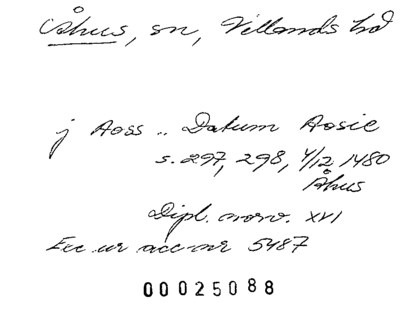 Åhus, sn, Villands hd
j Aoss .. Datum Aosie
s. 297, 298, 4/12 1480
Åhus
Dipl. norv. XVI
Exc ur acc-nr 5487
00025088